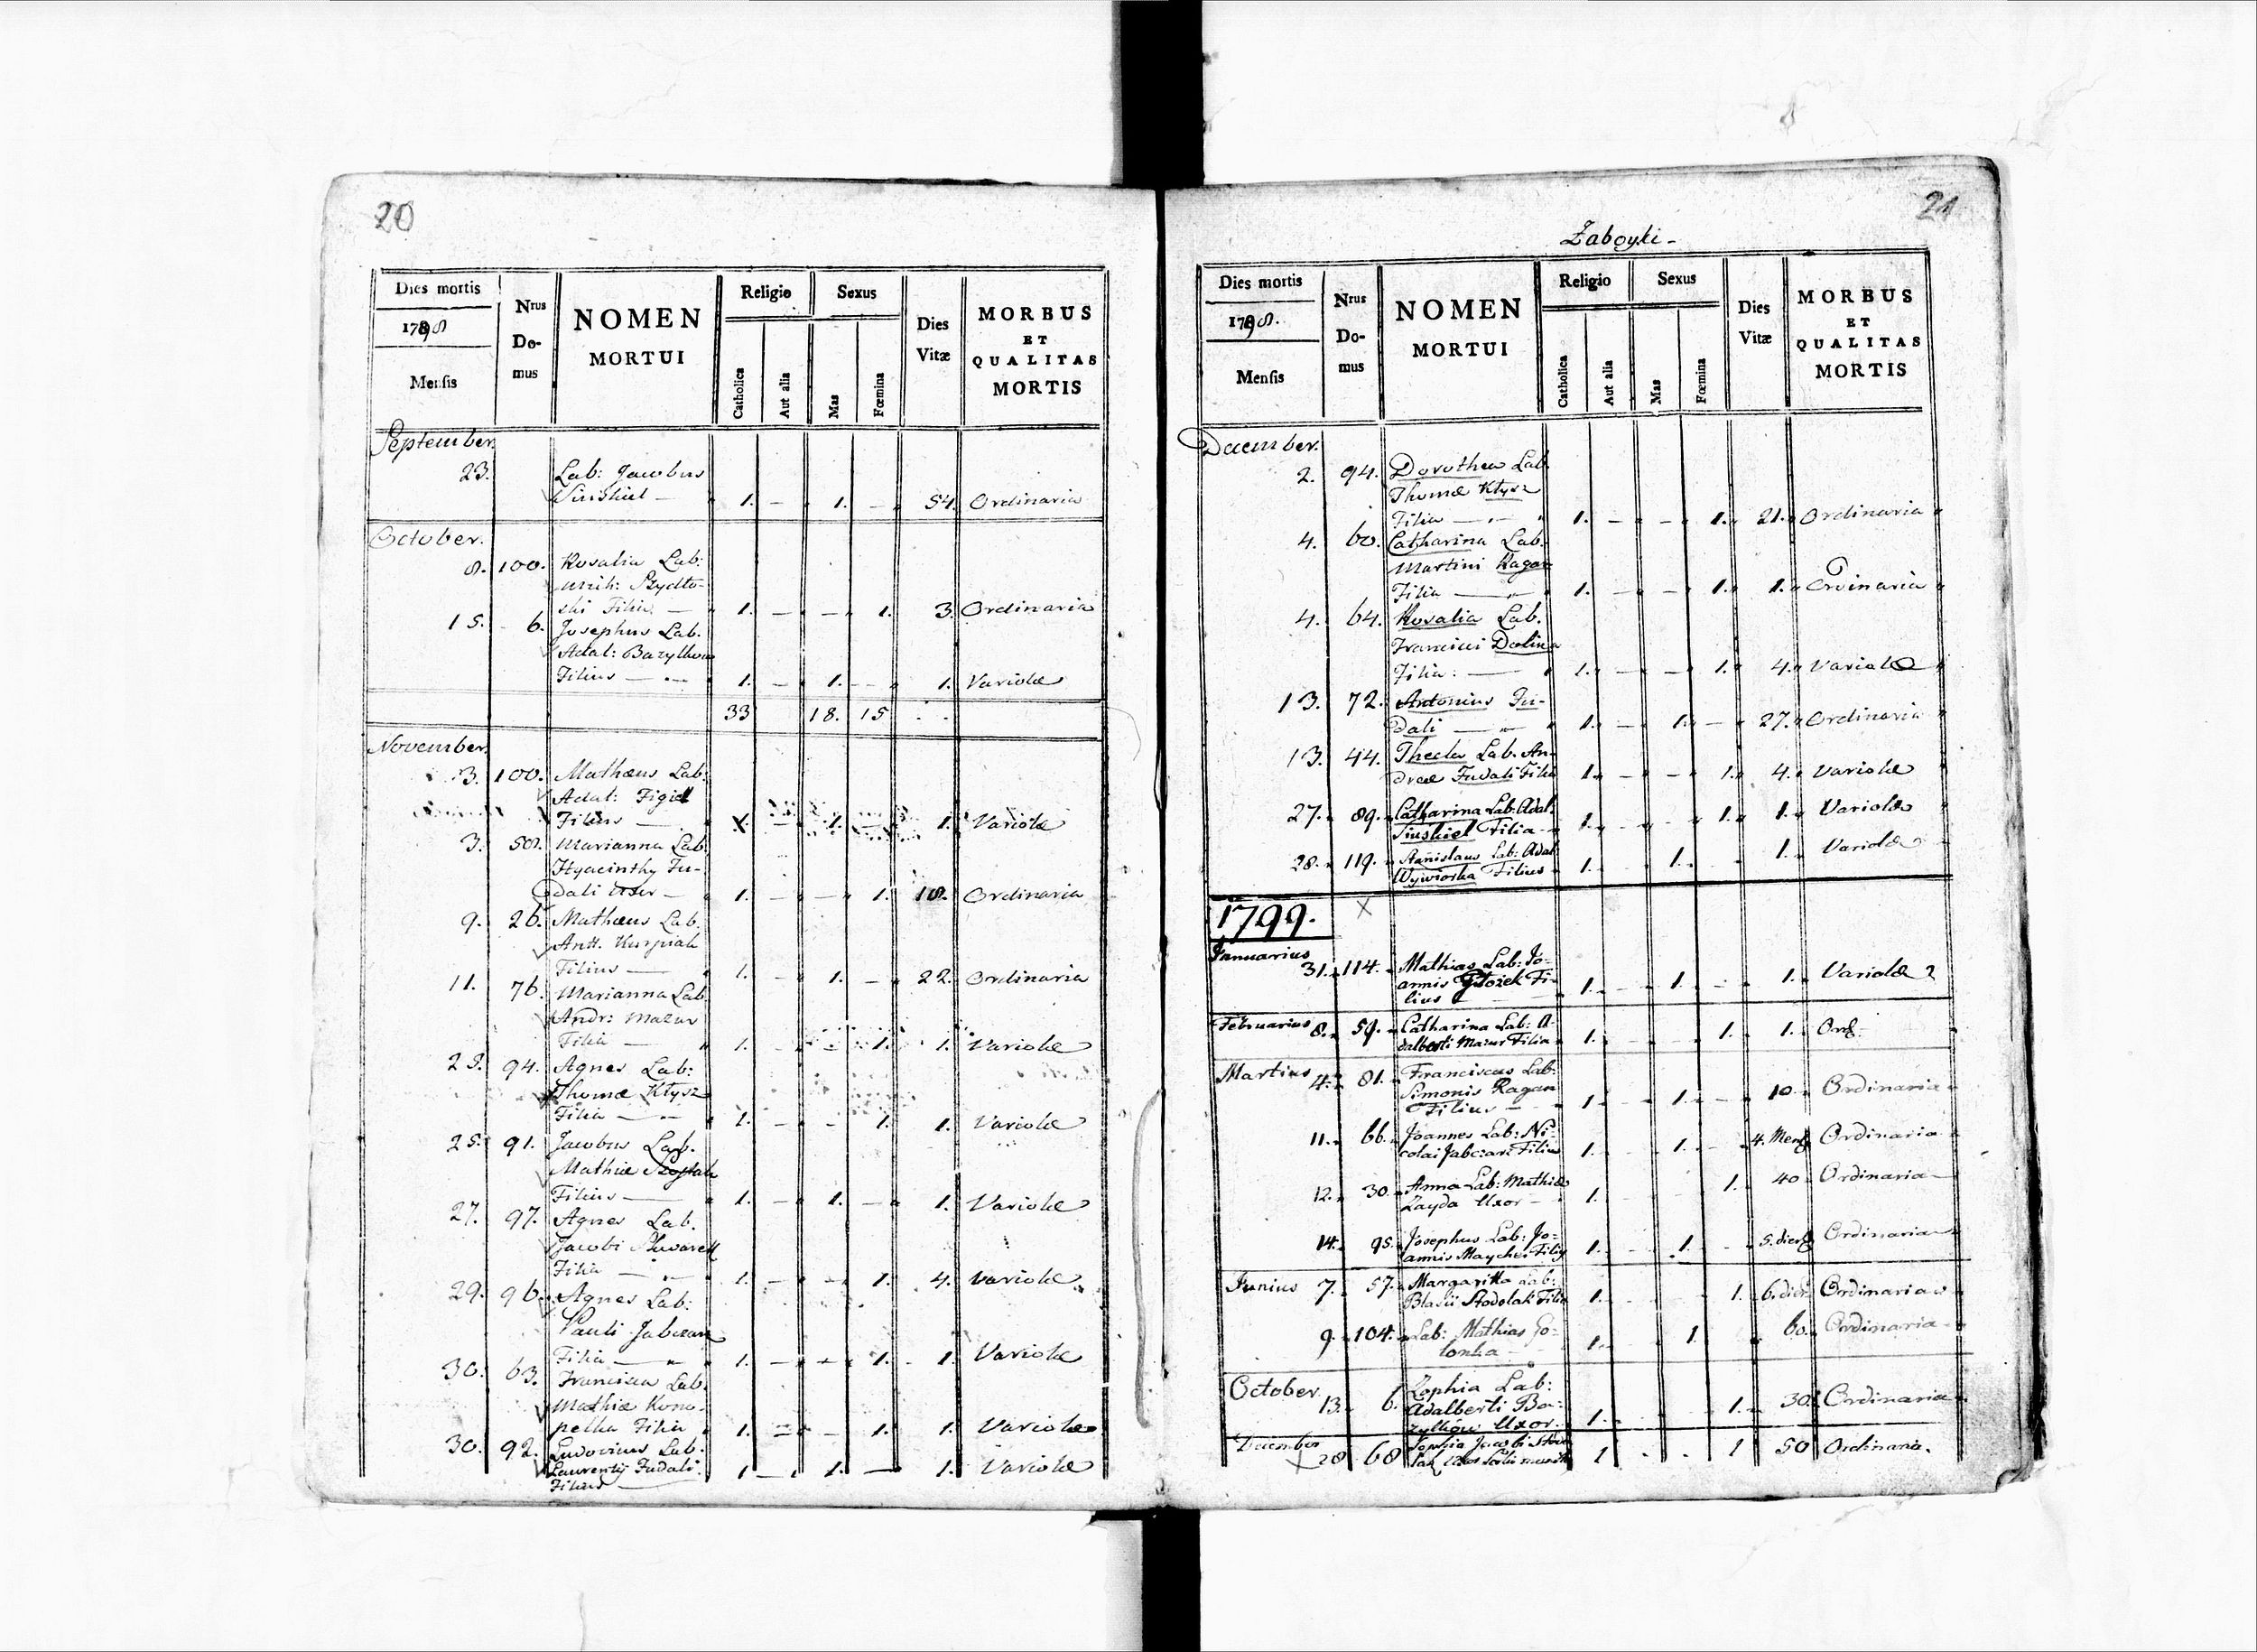 20
Dies mortis
1798
Mensis
Nrus Do-mus
NOMEN MORTUI
Religio
Catholica
Aut alia
Sexus
Mas
Fœmina
Dies Vitæ
MORBUS ET QUALITAS MORTIS
September.
23. Lab: Jacobus
1. - 1. - 54. Ordinaria
October.
8. 100. Rosalia Lab:
Mich: Szydło-
ski Filia 1. - - 1. 3. Ordinaria
15. 6. Josephus Lab.
Adal: Bazylkow
Filius 1. - 1. - 1. Variolæ
33 18. 15
November.
3. 100. Mathæus Lab:
Adal: Figiel
Filius 1. - 1. - 1. Variolæ
3. 50. Marianna Lab.
Hyacinthy Fu-
dali Uxor 1. - - 1. 18. Ordinaria
9. 26. Mathæus Lab.
Antt. Kurpiah
Filius 1. - 1. - 22. Ordinaria
11. 76. Marianna Lab.
Andr: Mazur
Filia 1. - - 1. 1. Variolæ
25. 94. Agnes Lab:
Thomæ Kłysz
Filia 1. - - 1. 1. Variolæ
25. 91. Jacobus Lab.
Mathiæ
Filius 1. - 1. - 1. Variolæ
27. 97. Agnes Lab.
Jacobi
Filia 1. - - 1. 4. Variolæ
29. 96. Agnes Lab:
Pauli Jabczan
Filia 1. - - 1. 1. Variolæ
30. 63. Francisca Lab.
Mathiæ Kono-
pelka Filia 1. - - 1. 1. Variolæ
30. 92. Ludovicus Lab.
Laurentij Fudali
Filius 1. - 1. - 1. Variolæ
21
Zaboyki-
Dies mortis
1798.
Mensis
Nrus Do-mus
NOMEN MORTUI
Religio
Catholica
Aut alia
Sexus
Mas
Fœmina
Dies Vitæ
MORBUS ET QUALITAS MORTIS
December.
2. 94. Dorothea Lab.
Thomæ Kłysz
Filia 1. - - 1. 21. Ordinaria
4. 60. Catharina Lab.
Martini Ragan
Filia 1. - - 1. 1. Ordinaria
4. 64. Rosalia Lab.
Francisci Dolina
Filia: 1. - - 1. 4. Variolæ
13. 72. Antonius Fu-
dali 1. - 1. - 27. Ordinaria
13. 44. Thecla Lab. An-
dreæ Fudali Filia 1. - - 1. 4. Variolæ
27. 89. Catharina Lab. Adal.
Siuskiel Filia 1. - - 1. 1. Variolæ
28. 119. Stanislaus Lab: Adal
Wywiorka Filius 1. 1. 1. Variolæ
1799.
Januarius
31. 114. Mathias Lab: Jo-
annis Głozek Fi-
lius 1. 1. 1. Variolæ
Februarius 8. 59. Catharina Lab: A-
dalberti Mazur Filia 1. 1. 1. Ord.
Martius 4. 81. Franciscus Lab:
Simonis Ragan
Filius 1. 1. 10. Ordinaria
11. 66. Joannes Lab: Ni-
colai Jabczan Filius 1. 1. 4. Mens Ordinaria
12. 30. Anna Lab: Mathiæ
Zayda Uxor 1. 1. 40 Ordinaria
14. 95. Josephus Lab: Jo-
annis Maycher Filij 1. 1. 5. dier Ordinaria
Junius 7. 57. Margaritta Lab:
Blasii Stodolak Filia 1. 1. 6. dier Ordinaria
9. 104. Lab: Mathias Go-
lonka 1. 1. 60. Ordinaria
October.
13. 6. Zophia Lab:
Adalberti Ba-
zylkow Uxor. 1. 1. 30. Ordinaria
December
28 68 Sophia Jacobi
1 1 50 Ordinaria.